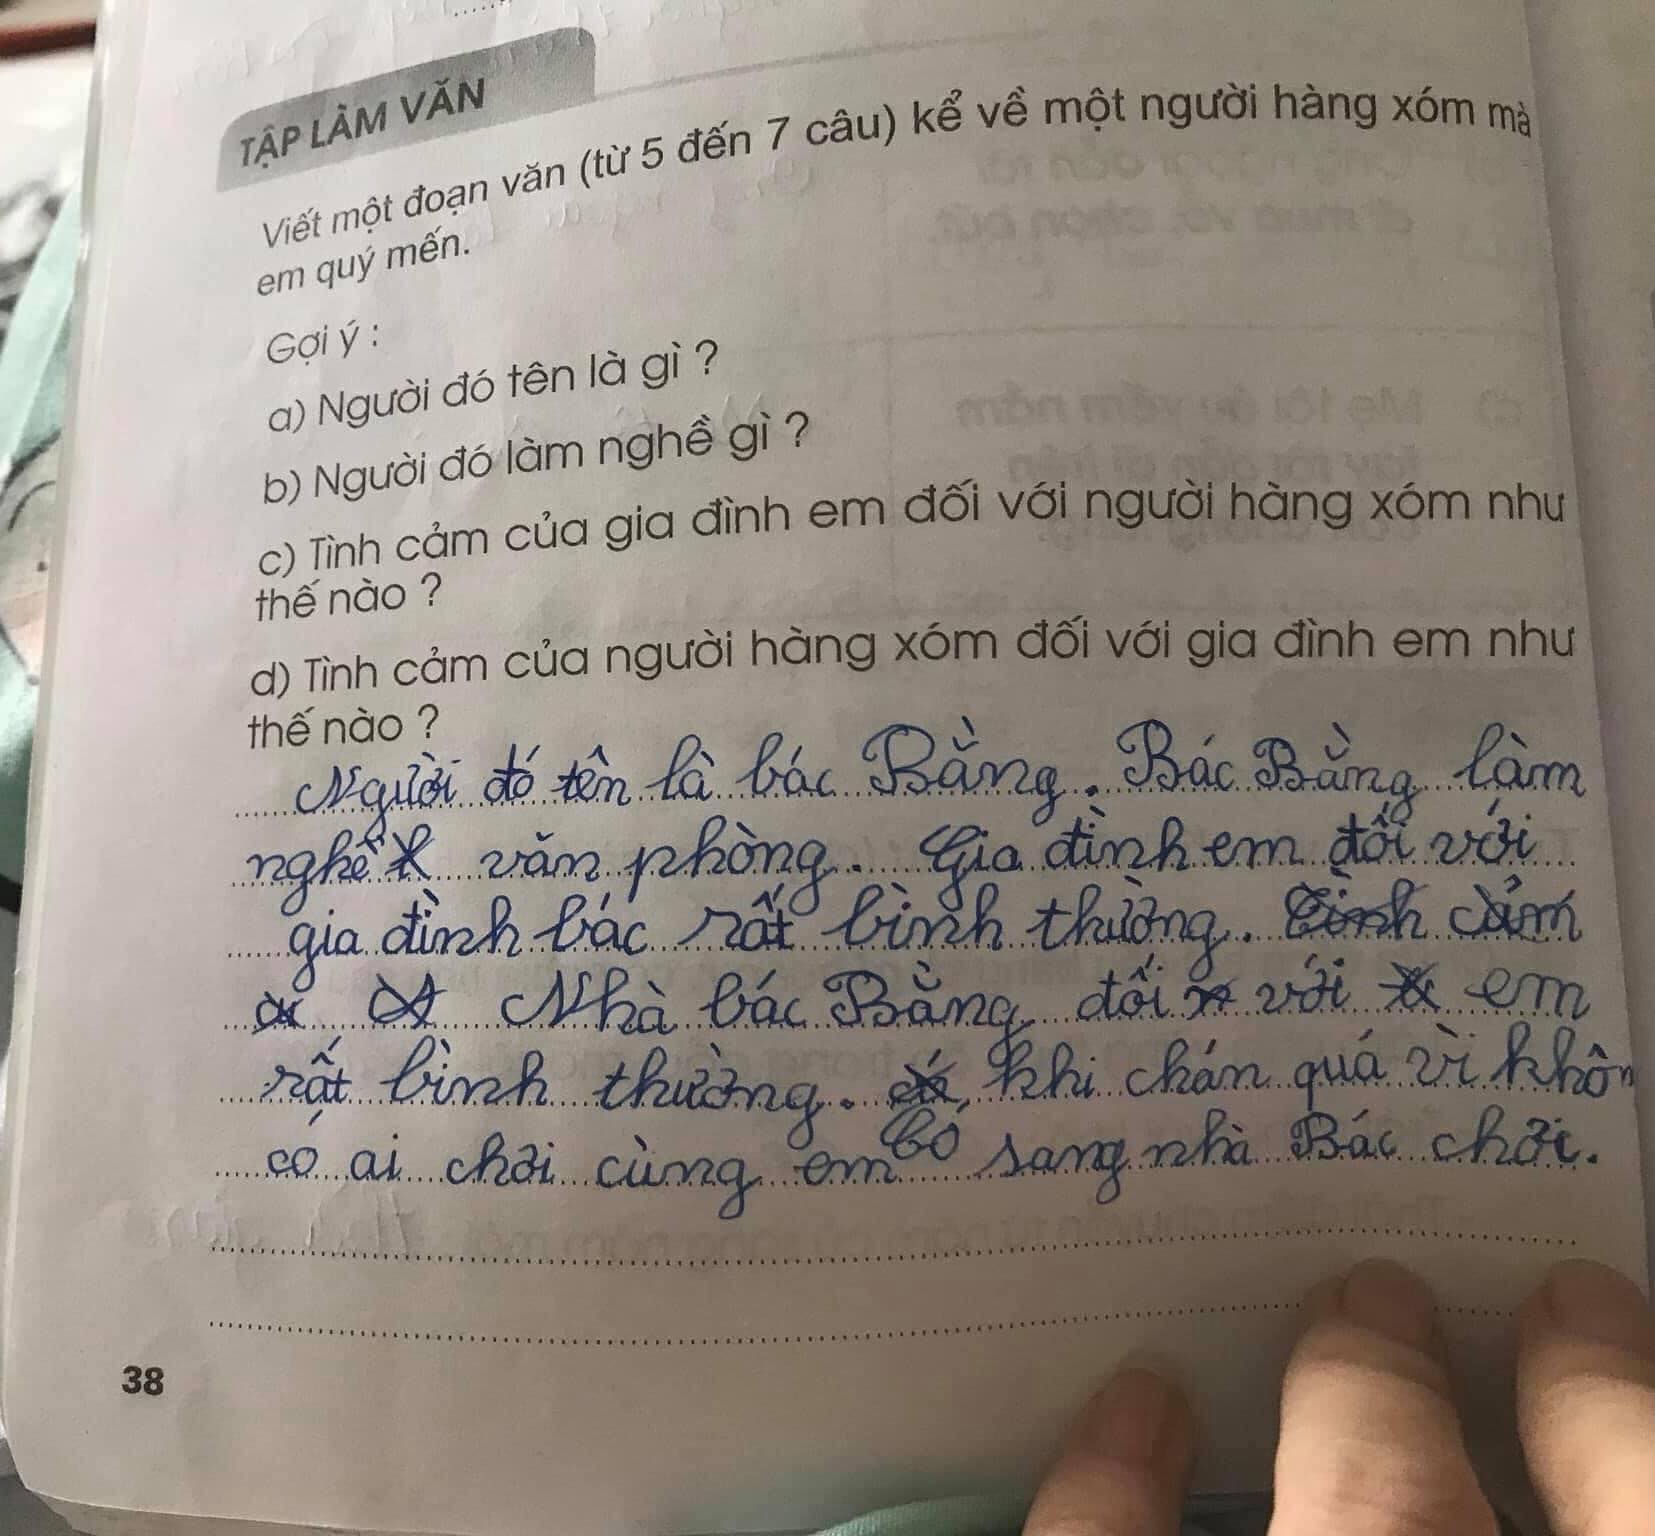 TẬP LÀM VĂN
Viết một đoạn văn (từ 5 đến 7 câu) kể về một người hàng xóm mà
em quý mến.
Gợi ý :
a) Người đó tên là gì ?
b) Người đó làm nghề gì ?
c) Tình cảm của gia đình em đối với người hàng xóm như
thế nào ?
d) Tình cảm của người hàng xóm đối với gia đình em như
thế nào ?
Người đó tên là bác Bằng. Bác Bằng làm
nghề văn phòng. Gia đình em đối với
gia đình bác rất bình thường. Tình cảm
Nhà bác Bằng đối với em
rất bình thường. khi chán quá vì khôn
có ai chơi cùng em có sang nhà Bác chơi.
38